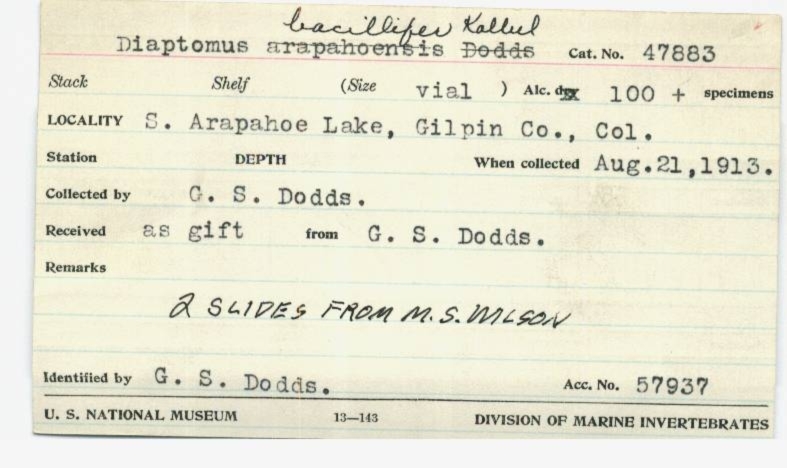 bacillifer Kolbel
Diaptomus arapahoensis Dodds Cat. No. 47883
Stack Shelf (Size vial ) Alc. dry 100 + specimens
LOCALITY S. Arapahoe Lake, Gilpin Co., Col.
Station DEPTH When collected Aug.21,1913.
Collected by G. S. Dodds.
Received as gift from G. S. Dodds.
Remarks
2 SLIDES FROM M.S. WILSON
Identified by G. S. Dodds. Acc. No. 57937
U. S. NATIONAL MUSEUM 13—143 DIVISION OF MARINE INVERTEBRATES